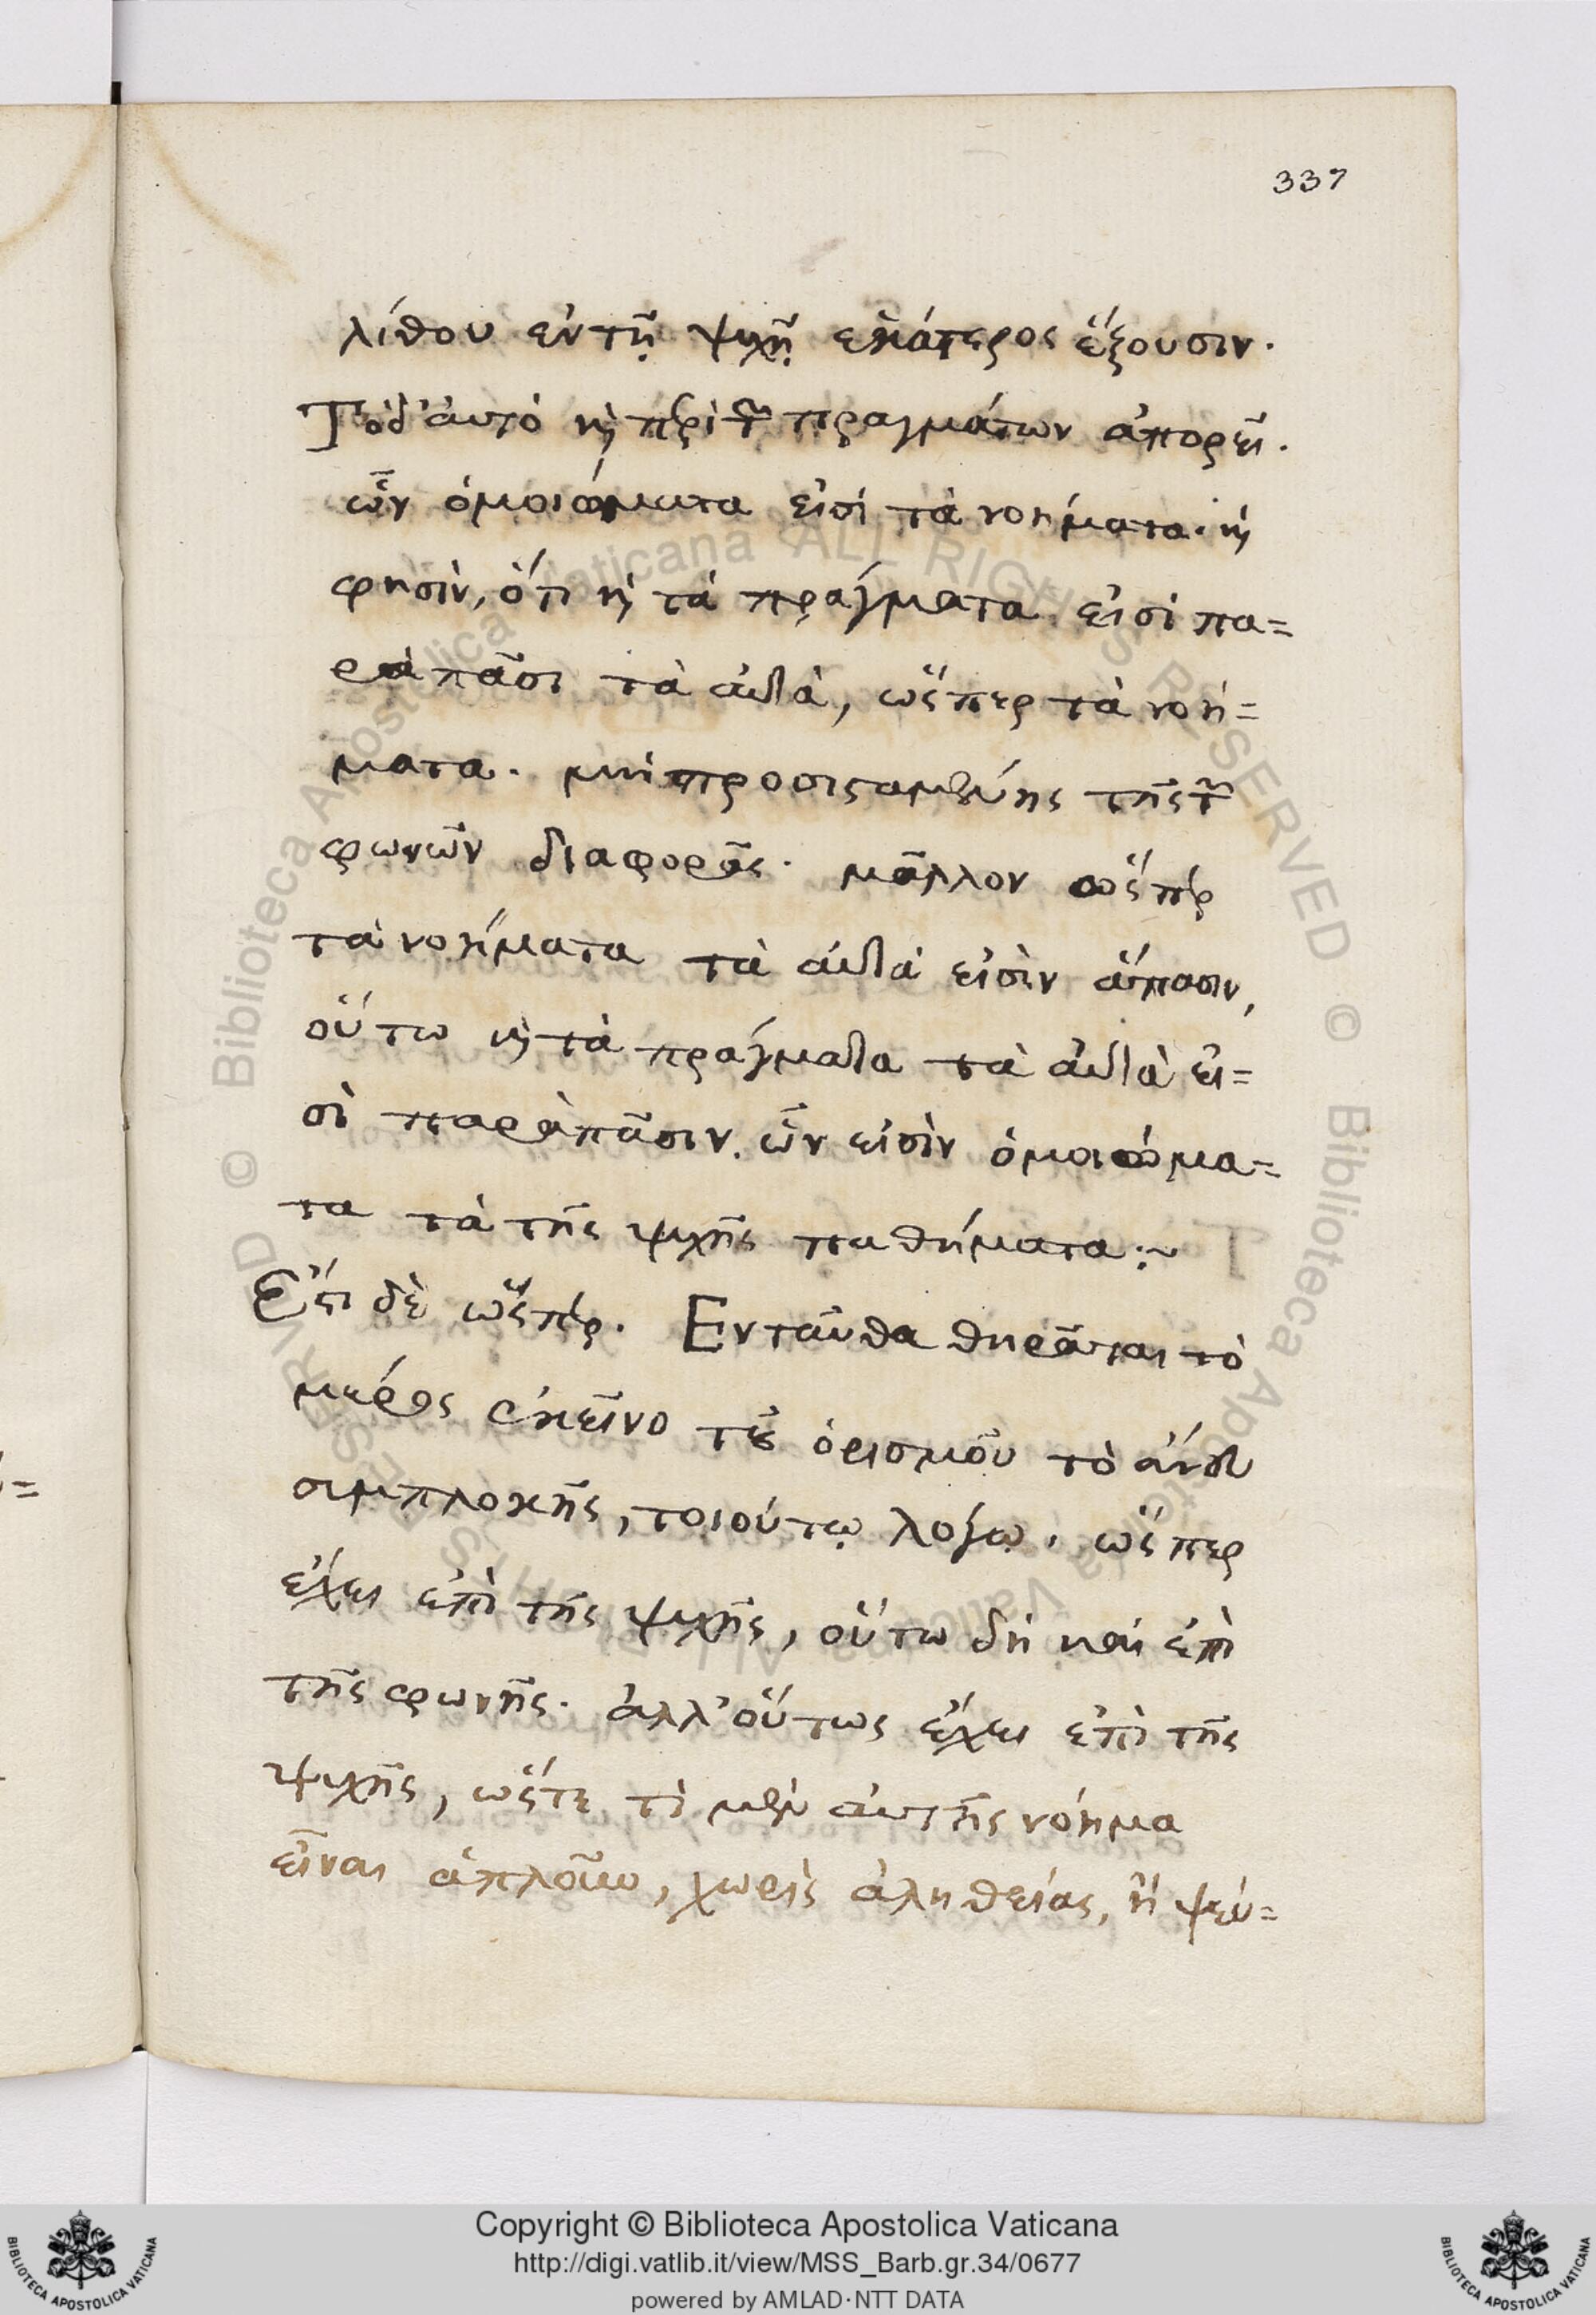 337
λίθου ἐν τῇ ψυχῇ ἑκάτερος ἕξουσιν.
Τὸ δ' αὐτὸ καὶ περὶ τῶν πραγμάτων ἀπορεῖ.
ὧν ὁμοιώματα εἰσί τὰ νοήματα. καὶ
φησὶν, ὅτι καὶ τὰ πράγματα εἰσὶ πα=
ρὰ πᾶσι τὰ αὐτὰ, ὥσπερ τὰ νοή=
ματα. μὴ προσισταμένης τῆς τῶν
φωνῶν διαφορᾶς. μᾶλλον ὥσπερ
τὰ νοήματα τὰ αὐτά εἰσὶν ἅπασιν,
οὕτω καὶ τὰ πράγματα τὰ αὐτὰ εἰ=
σὶ παρὰ πᾶσιν. ὧν εἰσὶν ὁμοιώμα=
τα τὰ τῆς ψυχῆς παθήματα :~
Ἔστι δὲ ὥσπερ. Ενταῦθα θηρᾶται τὸ
μέρος ἐκεῖνο τοῦ ὁρισμοῦ τὸ ἄνευ
συμπλοκῆς, τοιούτῳ λόγῳ. ὥσπερ
ἔχει ἐπὶ τῆς ψυχῆς, οὕτω δὴ καὶ ἐπὶ
τῆς φωνῆς. ἀλλ' οὕτως ἔχει ἐπὶ τῆς
ψυχῆς, ὥστε τὶ μὲν αὐτῆς νόημα
εἶναι ἁπλοῦν, χωρὶς ἀληθείας, ἢ ψεύ=
Copyright © Biblioteca Apostolica Vaticana
http://digi.vatlib.it/view/MSS_Barb.gr.34/0677
powered by AMLAD·NTT DATA